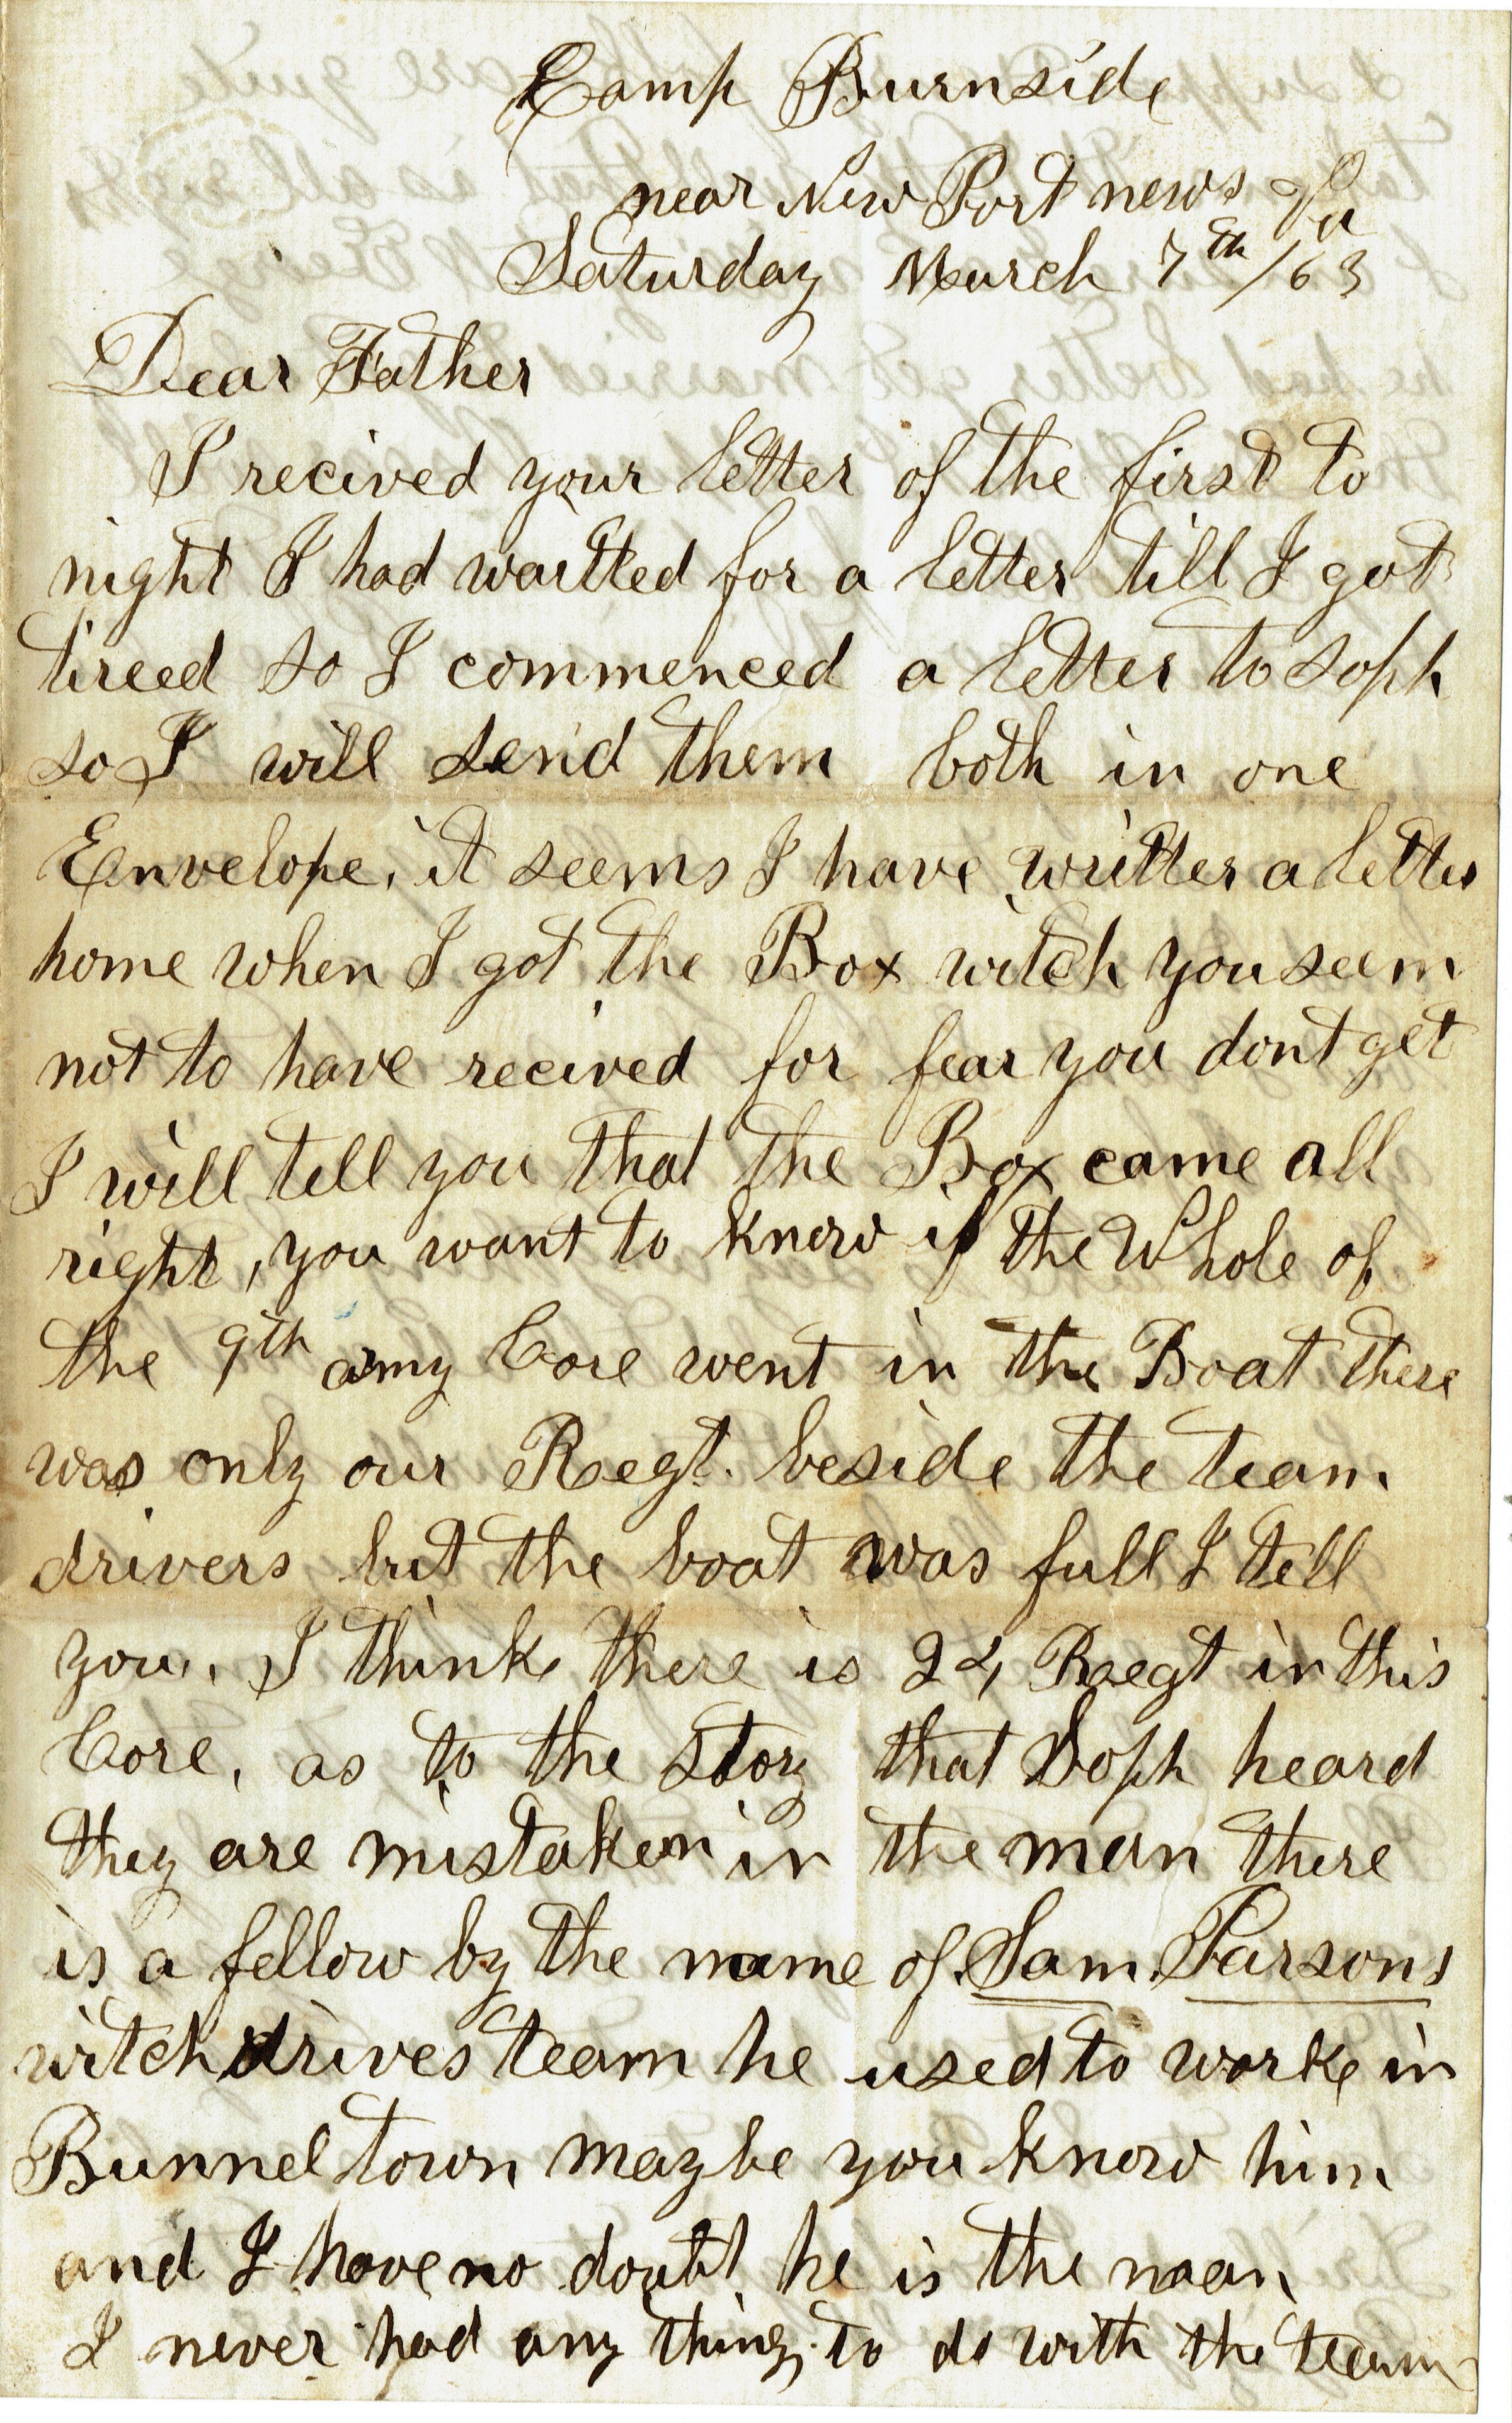 Camp Burnside
near New Port news Va
Saturday March 7th /63
Dear Father
I recived your letter of the first to
night I had waitted for a letter till I got
tireed so I commenced a letter to Soph
so I will send them both in one
Envelope, it seems I have writter a letter
home when I got the Box witch you seem
not to have recived for fear you dont get
I will tell you that the Box came all
right, you want to know if the Whole of
the 9th army Core went in the Boat there
was only our Regt. beside the team
drivers but the boat was full I tell
you. I think there is 24 Regt in this
Core, as to the Story that Soph heard
they are mistaken in the man there
is a fellow by the name of Sam Parsons
witch drives team he used to worke in
Bunnel town maybe you know him
and I have no doubt he is the man
I never had any thing to do with the team